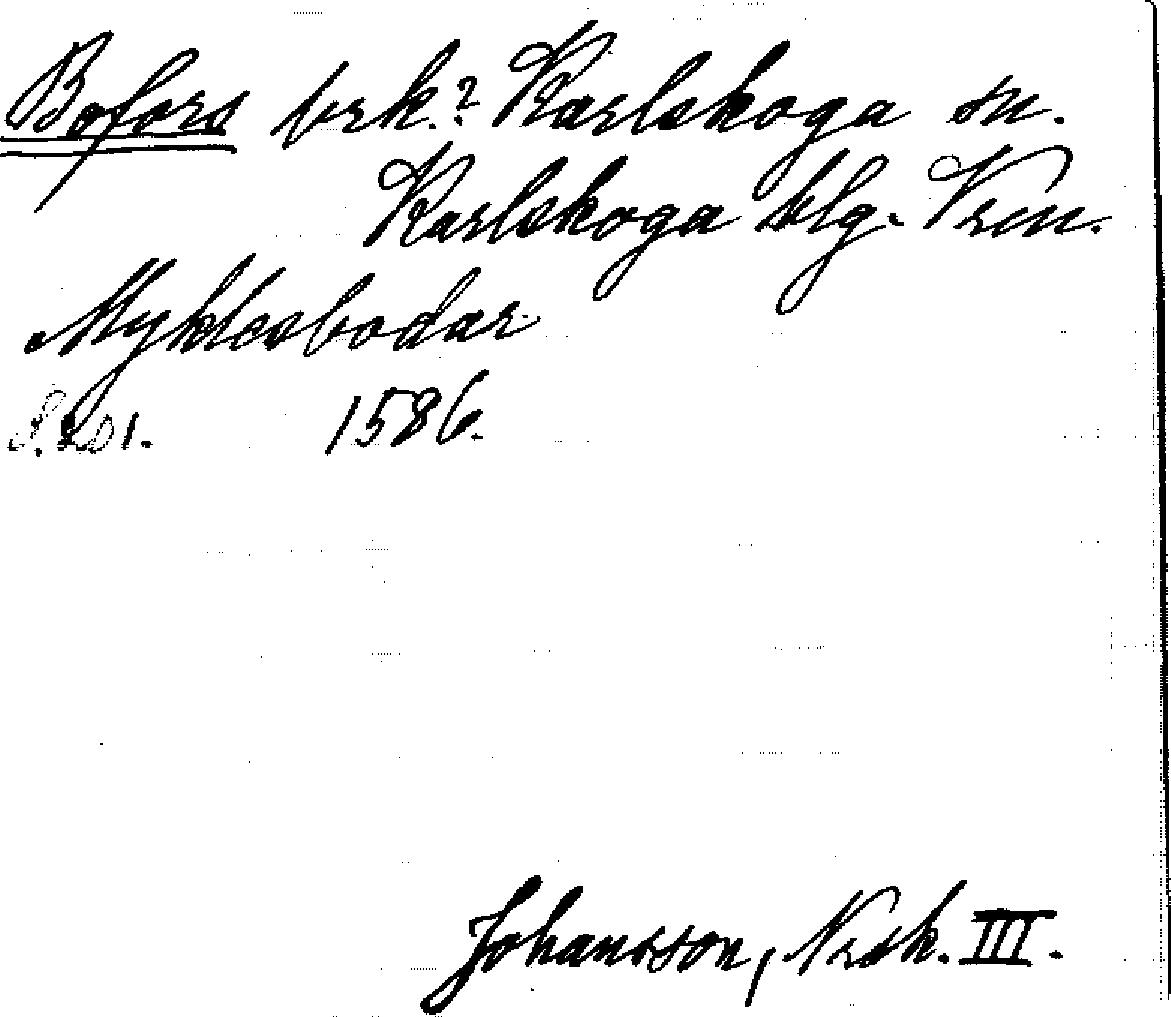 Bofors brk.? Karlskoga sn.
Karlskoga blg. Vrm.
Myklesbodar
S. 201. 1586.
Johansson, Nrsk. III.